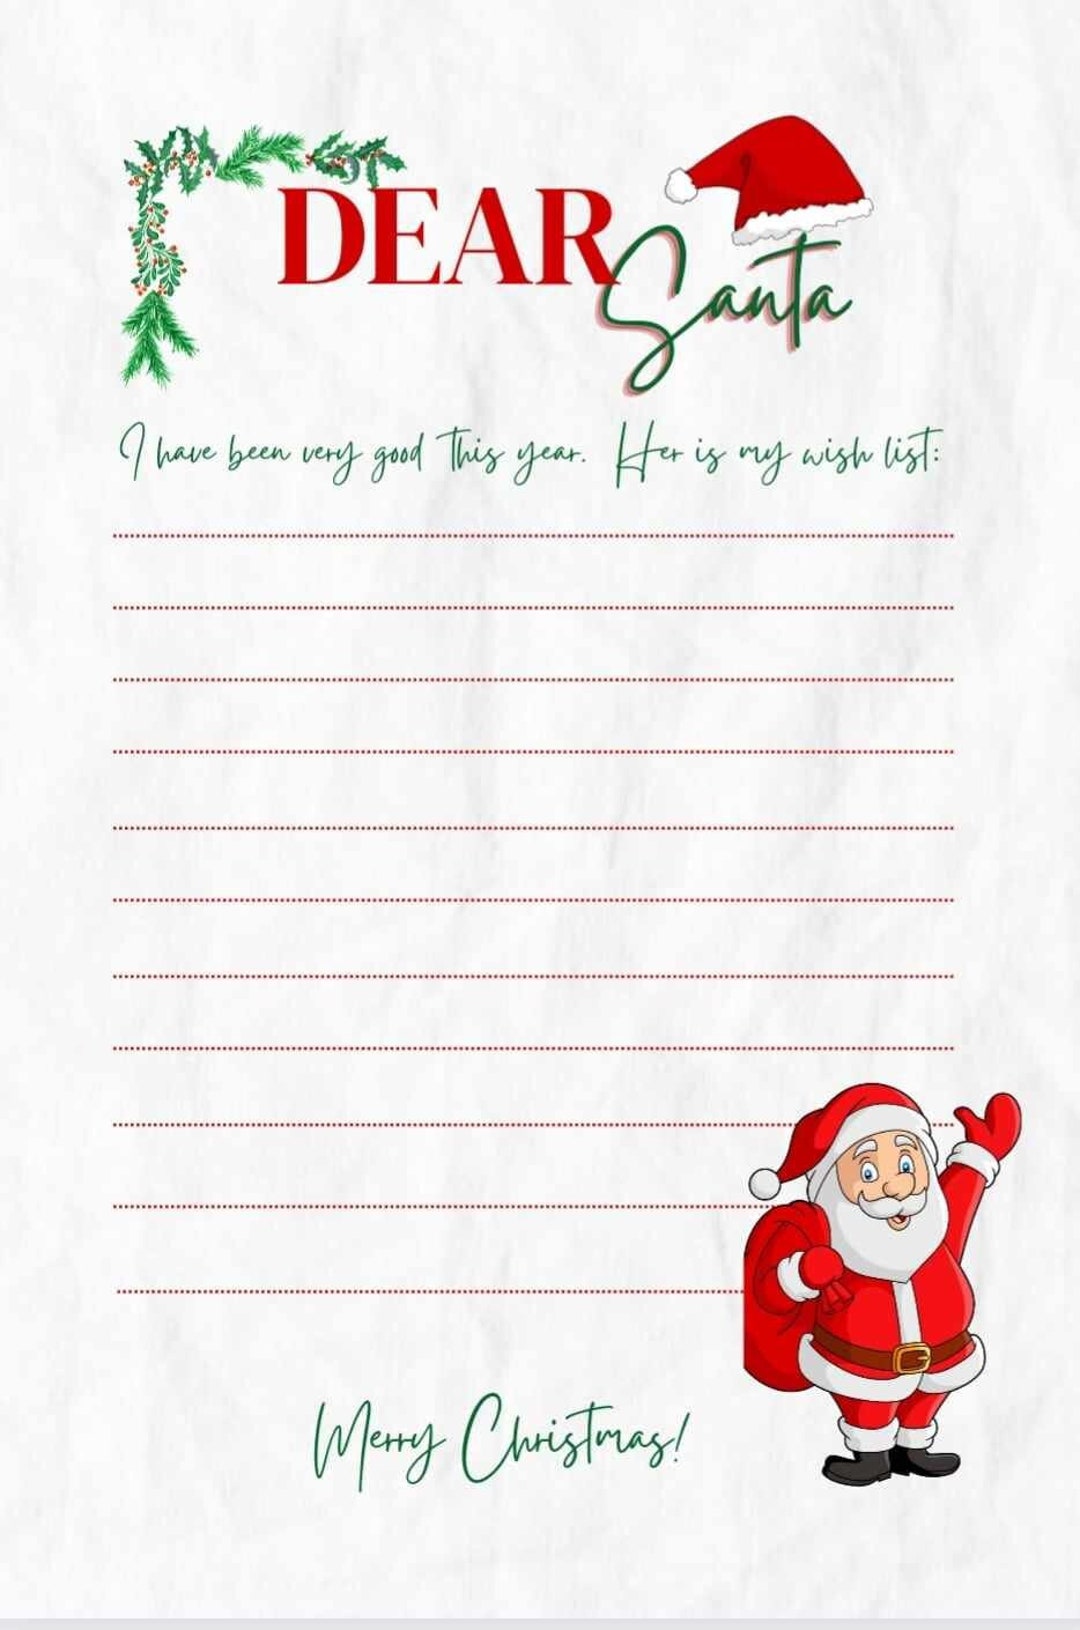 DEAR
Santa
I have been very good this year. Her is my wish list:
Merry Christmas!